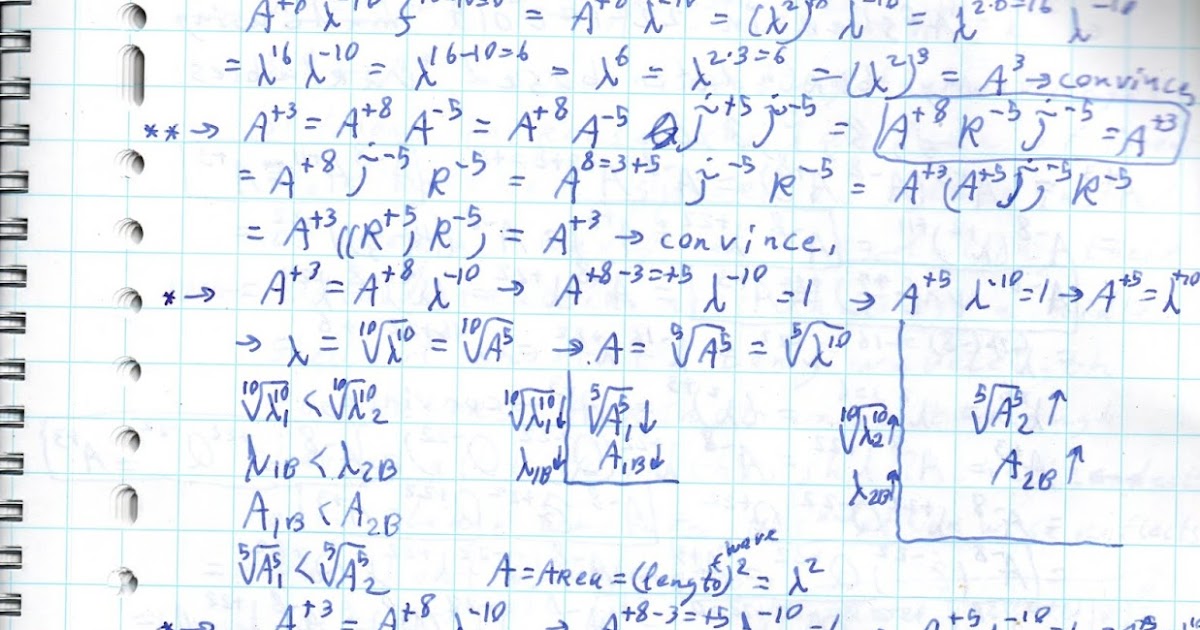 = A⁺⁸ λ⁻¹⁰ = (λ²)⁸ λ⁻¹⁰ = λ²·⁸⁼¹⁶ λ⁻¹⁰
= λ¹⁶ λ⁻¹⁰ = λ¹⁶⁻¹⁰⁼⁶ = λ⁶ = λ²·³⁼⁶ = (λ²)³ = A³ → convince,
** → A⁺³ = A⁺⁸ A⁻⁵ = A⁺⁸ A⁻⁵ j⁺⁵ j⁻⁵ = A⁺⁸ R⁻⁵ j⁻⁵ = A⁺³
= A⁺⁸ j⁻⁵ R⁻⁵ = A⁸⁼³⁺⁵ j⁻⁵ R⁻⁵ = A⁺³(A⁺⁵ j)⁻⁵ R⁻⁵
= A⁺³((R⁺⁵) R⁻⁵) = A⁺³ → convince,
* → A⁺³ = A⁺⁸ λ⁻¹⁰ → A⁺⁸⁻³⁼⁺⁵ λ⁻¹⁰ = 1 → A⁺⁵ λ⁻¹⁰ = 1 → A⁺⁵ = λ⁺¹⁰
→ λ = ¹⁰√λ¹⁰ = ¹⁰√A⁵ → A = ⁵√A⁵ = ⁵√λ¹⁰
¹⁰√λ₁¹⁰ < ¹⁰√λ₂¹⁰ ¹⁰√λ₁¹⁰↓ ⁵√A₁⁵↓ ¹⁰√λ₂¹⁰↑ ⁵√A₂⁵↑
λ₁B < λ₂B λ₁B↓ A₁B↓ λ₂B↑ A₂B↑
A₁B < A₂B
⁵√A₁⁵ < ⁵√A₂⁵ A = Area = (length wave)² = λ²
* → A⁺³ = A⁺⁸ λ⁻¹⁰ → A⁺⁸⁻³⁼⁺⁵ λ⁻¹⁰